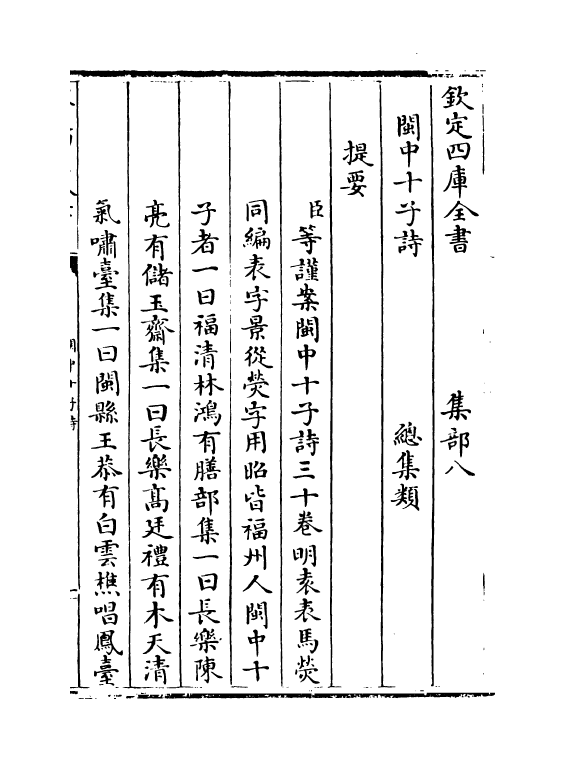 欽定四庫全書　集部八
閩中十子詩　總集類
提要
臣等謹案閩中十子詩三十卷明袁表馬熒
同編表字景從熒字用昭皆福州人閩中十
子者一曰福清林鴻有膳部集一曰長樂陳
亮有儲玉齋集一曰長樂高廷禮有木天清
氣嘯臺集一曰閩縣王恭有白雲樵唱鳳臺